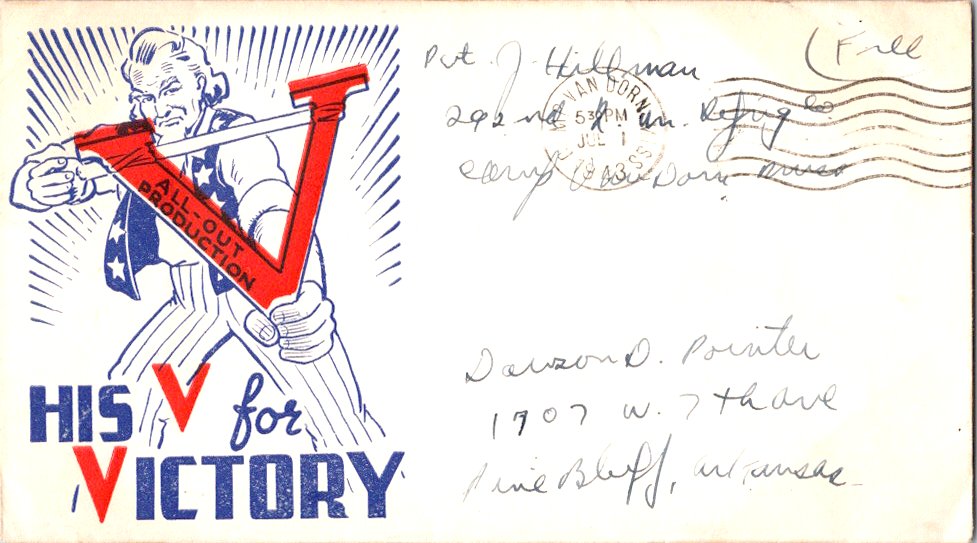 Pvt. J. Hillman
(Free
VAN DORN
530 PM
JUL 1
1943
MISS
Camp Van Dorn Miss
ALL-OUT
PRODUCTION
Dawson D. Pointer
1707 W. 7th ave
Pine Bluff, arkansas
HIS V for
VICTORY